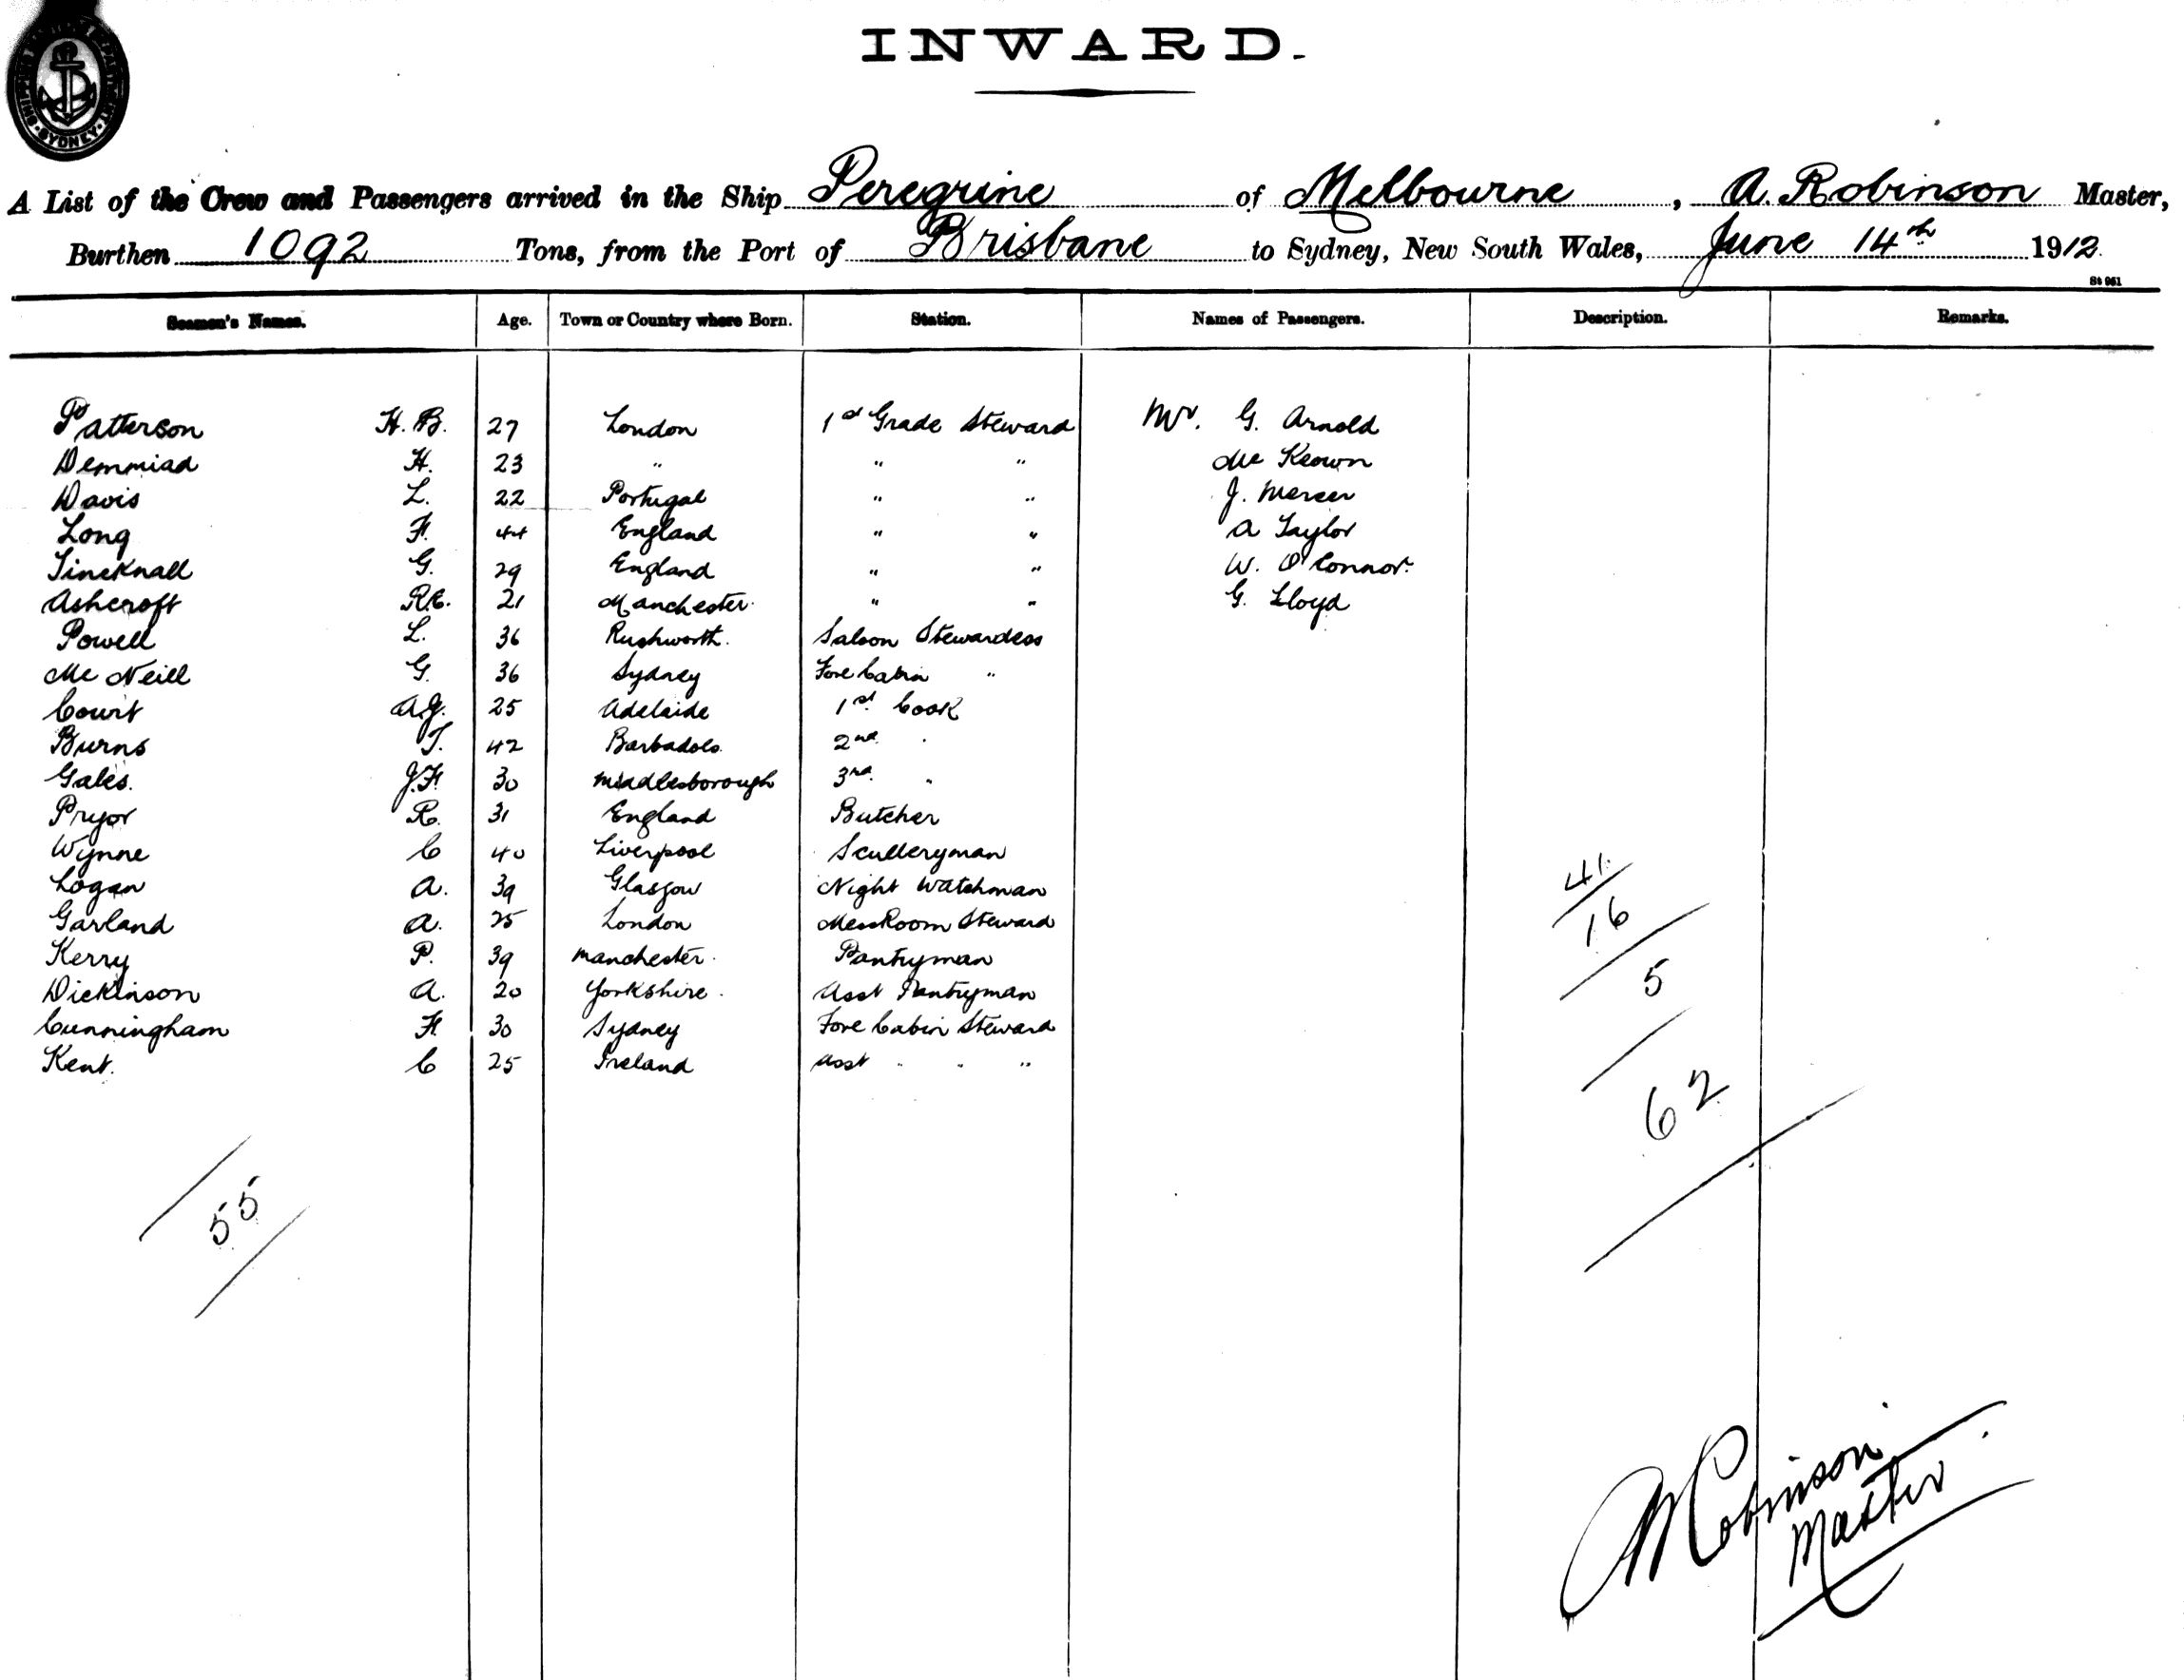 INWARD.
A List of the Crew and Passengers arrived in the Ship Peregrine of Melbourne, A. Robinson Master,
Burthen 1092 Tons, from the Port of Brisbane to Sydney, New South Wales, June 14th 1912.
St 961
Seamen's Names. Age. Town or Country where Born. Station. Names of Passengers. Description. Remarks.
Patterson H. B. 27 London 1st Grade Steward Mr. G. Arnold
Demmiad H. 23 " " " Mc Keown
Davis L. 22 Portugal " " J. Mercer
Long F. 44 England " " A Taylor
Tincknall G. 29 England " " W. O'Connor.
Ashcroft R.C. 21 Manchester. " " G. Lloyd
Powell L. 36 Rushworth. Saloon Stewardess
Mc Neill G. 36 Sydney Fore Cabin "
Court A.J. 25 Adelaide 1st Cook
Burns T. 42 Barbados. 2nd "
Gales. J.F. 30 Middlesborough 3rd "
Pryor R. 31 England Butcher
Wynne C 40 Liverpool Sculleryman
Logan A. 39 Glasgow Night Watchman
Garland A. 25 London MessRoom Steward
Kerry P. 39 Manchester. Pantryman
Dickinson A. 20 Yorkshire. Asst Pantryman
Cunningham F. 30 Sydney Fore Cabin Steward
Kent. C 25 Ireland Asst " " "
41
16
5
62
55
A Robinson
Master